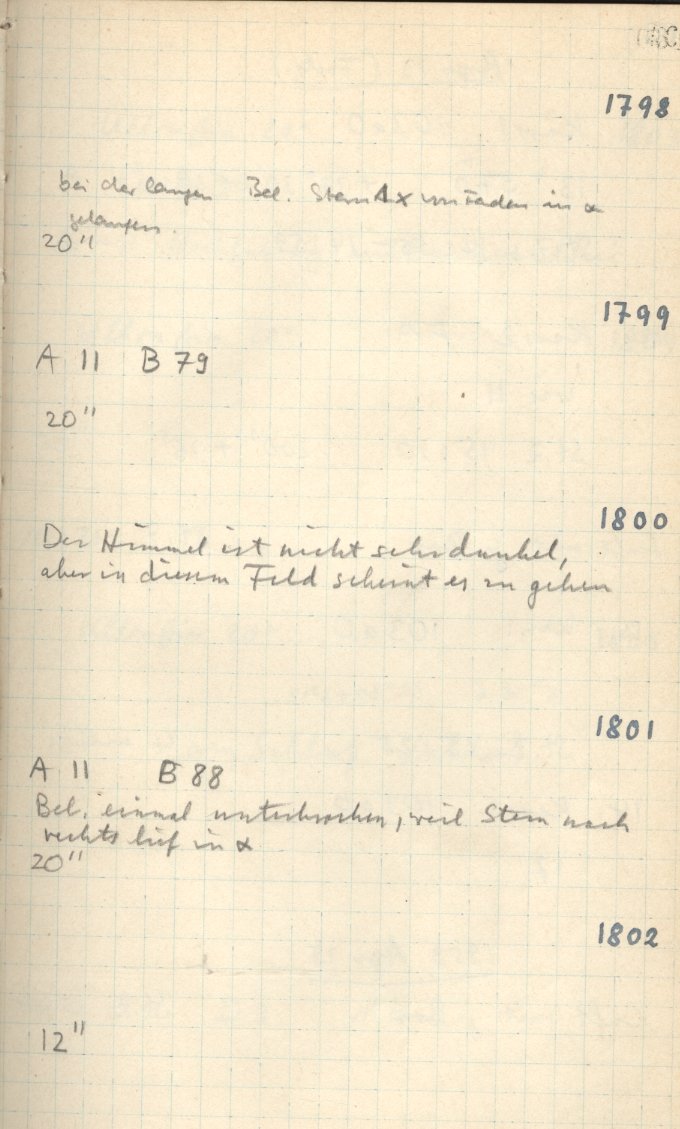 1798
bei der langen Bel. Stern 1x vom Faden in α
gelaufen.
20"
1799
A 11 B 79
20"
1800
Der Himmel ist nicht sehr dunkel,
aber in diesem Feld scheint es zu gehen
1801
A 11 B 88
Bel. einmal unterbrochen, weil Stern nach
rechts lief in α
20"
1802
12"